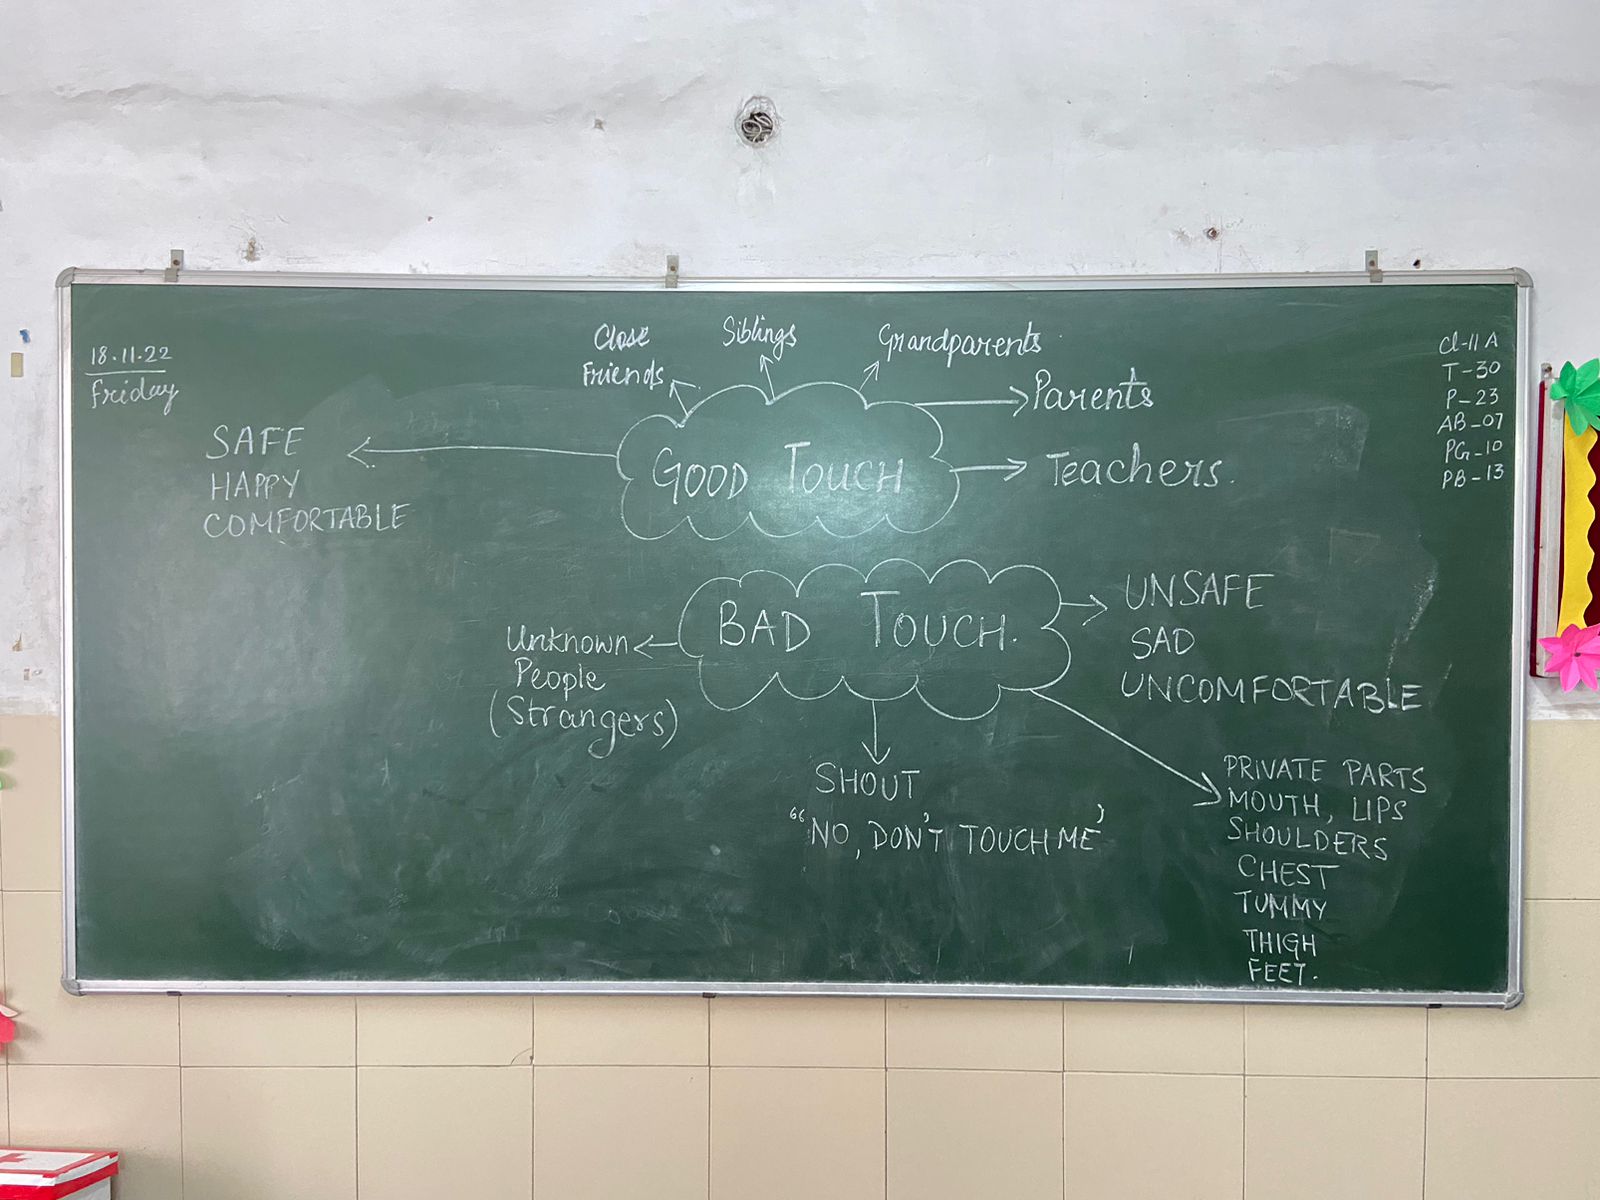 18.11.22
Friday
Close
Friends
Siblings
Grandparents
Parents
Teachers.
GOOD TOUCH
SAFE
HAPPY
COMFORTABLE
Cl-II A
T-30
P-23
AB-07
PG-10
PB-13
BAD TOUCH.
Unknown
People
(Strangers)
UNSAFE
SAD
UNCOMFORTABLE
SHOUT
"NO, DON'T TOUCH ME'
PRIVATE PARTS
MOUTH, LIPS
SHOULDERS
CHEST
TUMMY
THIGH
FEET.